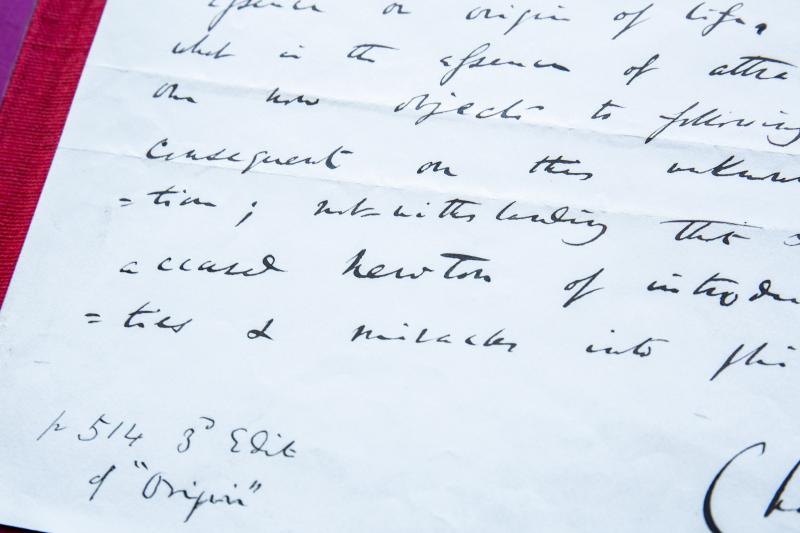 essence or origin of life,
what is the essence of attra
One now objects to following
consequent on this unknown
=tion ; not-withstanding that
accused Newton of introdu
=ties & miracles into phi
p 514 3d Edit
of "Origin"
Ch